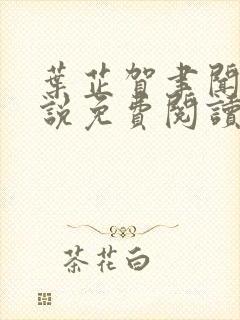 葉芷賀書聞
說免費閱讀
茶花白